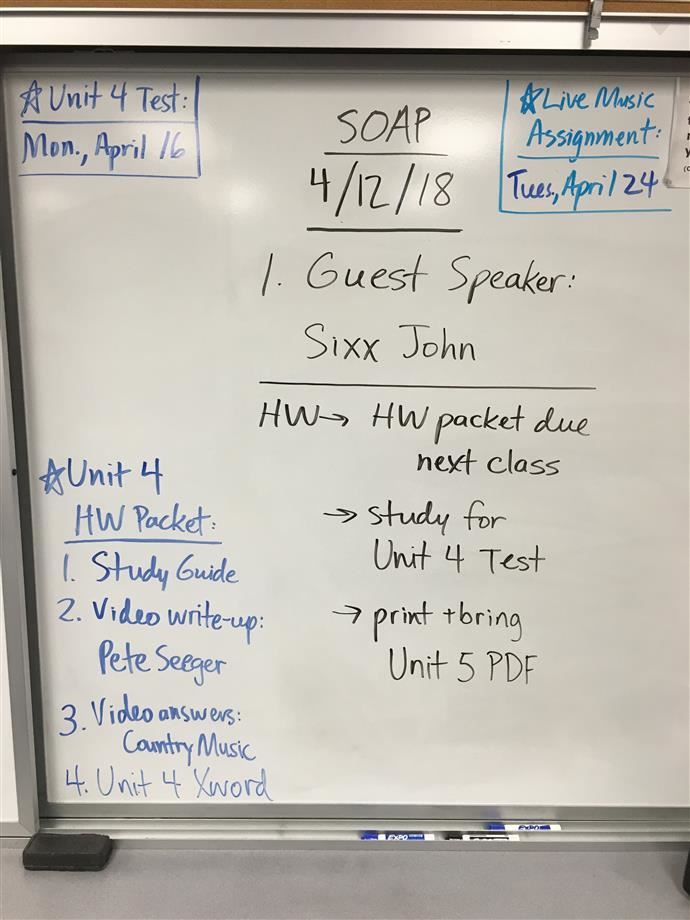 ☆Unit 4 Test:
Mon., April 16
SOAP
4/12/18
☆Live Music
Assignment:
Tues., April 24
1. Guest Speaker:
Sixx John
HW→ HW packet due
next class
→ study for
Unit 4 Test
→ print + bring
Unit 5 PDF
☆Unit 4
HW Packet:
1. Study Guide
2. Video write-up:
Pete Seeger
3. Video answers:
Country Music
4. Unit 4 Xword
EXPO
EXPO